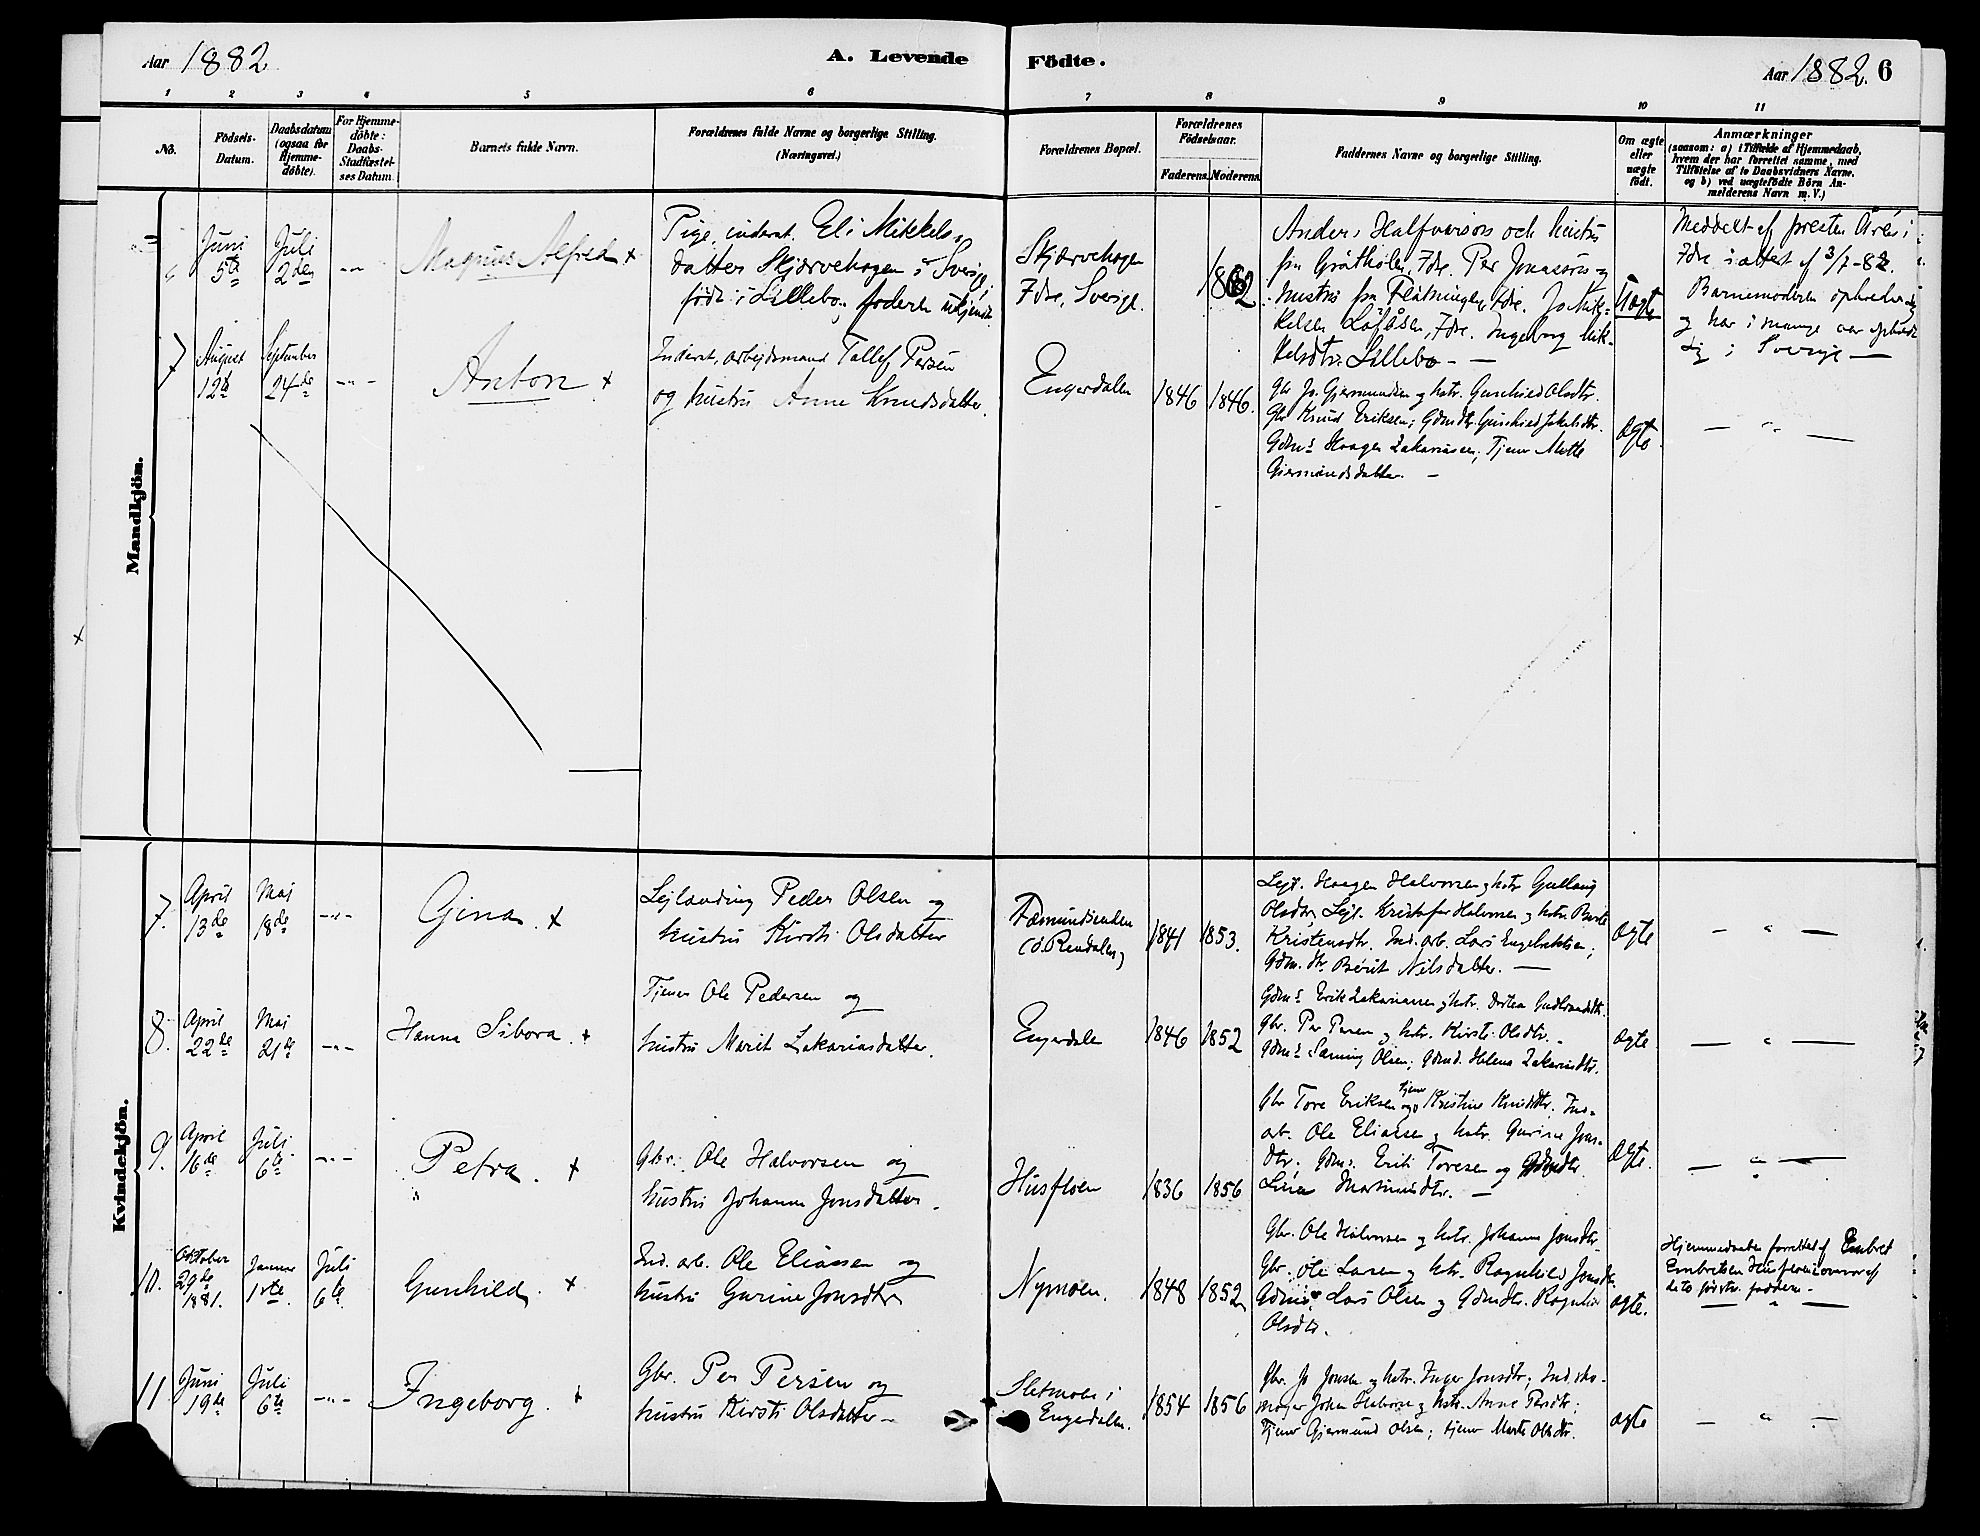 Aar 1882
A. Levende Födte.
Aar 1882. 6
1 2 3 4 5 6 7 8 9 10 11
No.
Födsels-
Datum.
Daabsdatum
(ogsaa for
Hjemme-
döbte).
For Hjemme-
döbte:
Daabs-
Stadfæstel-
ses Datum.
Barnets fulde Navn.
Forældrenes fulde Navne og borgerlige Stilling.
(Næringsvei.)
Forældrenes Bopæl.
Forældrenes
Födselsaar.
Faderens. Moderens.
Faddernes Navne og borgerlige Stilling.
Om ægte
eller
uægte
födt.
Anmærkninger
(saasom: a) i Tilfælde af Hjemmedaab,
hvem der har forrettet samme, med
Tilföielse af to Daabsvidners Navne.
og b) ved uægtefödte Börn An-
melderens Navn m. V.)
Mandkjön.
6
Juni
5te
Juli
2den
-"-
Magnus Alfred +
Pige, inderst. Eli Mikkels-
datter Skjærvehagen i Sverige,
född i Lillebo;
Skjærvehagen
Idre, Sverige.
1862
Anders Halfvarsson och hustru
från Grötholen, Idre. Per Jonasson og
hustru från Flötningen, Idre. Jo Mik-
kelsen Löfåsen, Idre. Ingeborg Mik-
kelsdtr. Lillebo - —
Uægte
Meddelt af presten Arén i
Idre i attest af 3/7-82.
Barnemoderen opholder sig
og har i mange aar opholdt
sig i Sverige —
7
August
12te
September
24de
-"-
Anton +
Inderst, arbejdsmand Tallef Persen
og hustru Anne Knudsdatter.
Engerdalen
1846 1846.
Gbr. Jo Gjermundsen og hstr. Gunhild Olsdtr.
Gbr. Knud Eriksen; Gdmdtr. Gunhild Jakobsdtr.
Gdms. Haagen Zakariassen; Tjener Mette
Gjermundsdatter. —
ægte
— " —
Kvindekjön.
7.
April
13de
Maj
18de
-"-
Gina. +
Lejlænding Peder Olsen og
hustru Kirsti Olsdatter
Fæmundsenden
(Ö. Rendalen)
1841 1853.
Lejl. Haagen Halvorsen og hstr. Gullaug
Olsdtr, Lejl. Kristofer Halvorsen og hstr. Berte
Kristensdtr. Ind. arb. Lars Engebretsen;
Gdm. dtr. Berit Nilsdatter. —
ægte
— " —
8.
April
22de
Maj
21de
-"-
Hanna Sibora. +
Tjener Ole Pedersen og
hustru Marit Zakariasdatter.
Engerdalen
1846 1852
Gdms. Erik Zakariassen og hstr. Dortea Gudbrandsdtr.
Gbr. Per Persen og hstr. Kirsti Olsdtr. -
Gdms. Sæming Olsen; Gdmd. Helena Zakariasdtr.
ægte
— " —
9.
April
16de
Juli
6te
-"-
Petra. +
Gbr. Ole Halvorsen og
hustru Johanne Jonsdatter.
Husfloen
1836 1856
Gbr. Tore Eriksen og tjener Kristine Knudsdtr. Ind.
arb. Ole Eliassen og hstr. Gurine Jons-
dtr; Gdms. Erik Toresen og Gdmdtr.
ægte.
— " —
10.
Oktober
29de
1881.
Januar
1ste.
Juli
6te
Gunhild. +
Ind. arb. Ole Eliassen og
hustru Gurine Jonsdtr
Nymoen.
1848 1852
Gbr. Ole Halvorsen og hstr. Johanne Jonsdtr
Gbr. Ole Larsen og hstr. Ragnhild Jonsdtr.
Gdms. Lars Olsen og Gdmdtr. Ragnhild
Olsdtr.
ægte.
Hjemmedaaben forrettet af Embret
Embretsen Husfloen i nærvær af
de to første faddere.
— " —
11
Juni
19de
Juli
6te
-"-
Ingeborg. +
Gbr. Per Persen og
hustru Kirsti Olsdatter -
Sletmoen i
Engerdalen.
1854 1856
Gbr. Jo Jonsen og hstr. Inger Jonsdtr; Ind. sko-
mager Johan og hstr. Anne Persdtr;
Tjener Gjermund Olsen; tjener Marte Olsdtr.
ægte
— " —